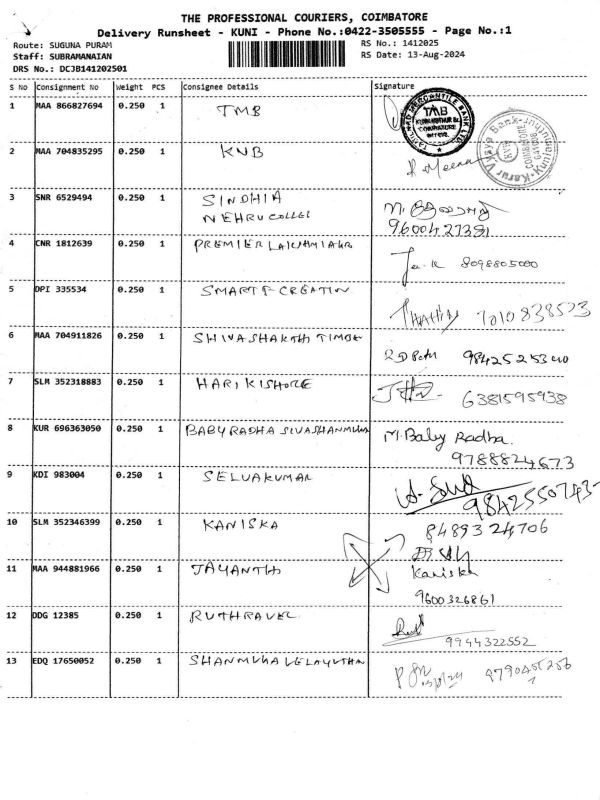 THE PROFESSIONAL COURIERS, COIMBATORE
Delivery Runsheet - KUNI - Phone No.:0422-3505555 - Page No.:1
Route: SUGUNA PURAM
RS No.: 1412025
Staff: SUBRAMANAIAN
RS Date: 13-Aug-2024
DRS No.: DCJB141202501
S No Consignment No Weight PCS Consignee Details Signature
1 MAA 866827694 0.250 1 TMB
2 MAA 704835295 0.250 1 KNB R. Meena
3 SNR 6529494 0.250 1 SINDHIA
NEHRU COLLEI
9600427381
4 CNR 1812639 0.250 1 PREMIER 8098805000
5 DPI 335534 0.250 1 SMART F CREATION
6 MAA 704911826 0.250 1 SHIVASHAKTHI TIMBE
7 SLM 352318883 0.250 1 HARI KISHORE 6381595938
8 KUR 696363050 0.250 1 BABY RADHA SIVASHANMUGA M. Baby Radha.
9788824673
9 KDI 983004 0.250 1 SELVAKUMAR
9842550743
10 SLM 352346399 0.250 1 KANISKA 8489324706
11 MAA 944881966 0.250 1 JAYANTH Kaniska
9600326861
12 DDG 12385 0.250 1 RUTHRAVEL
9944322552
13 EDQ 17650052 0.250 1 SHANMUKA VELAYUTHAN